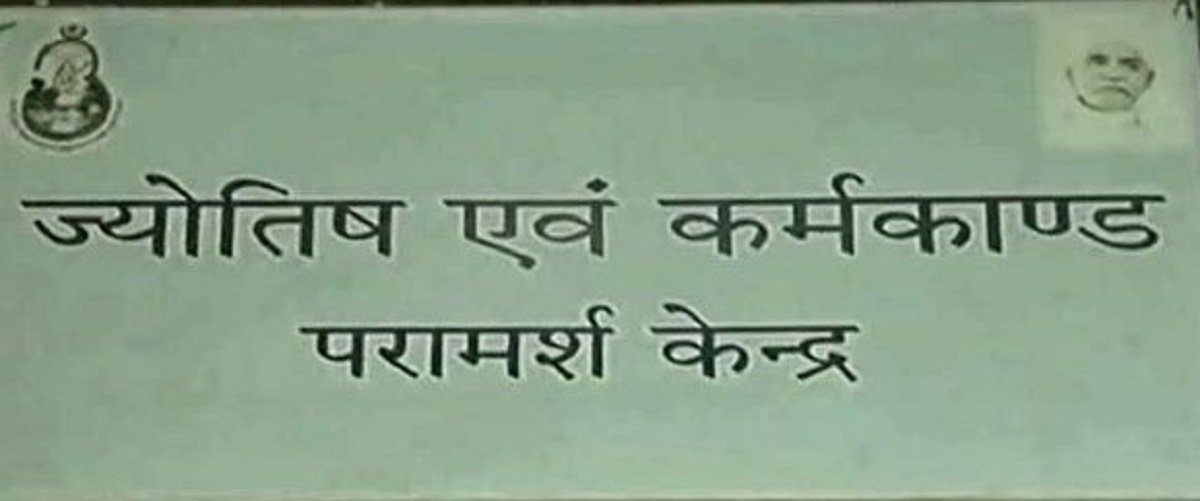 ज्योतिष एवं कर्मकाण्ड
परामर्श केन्द्र